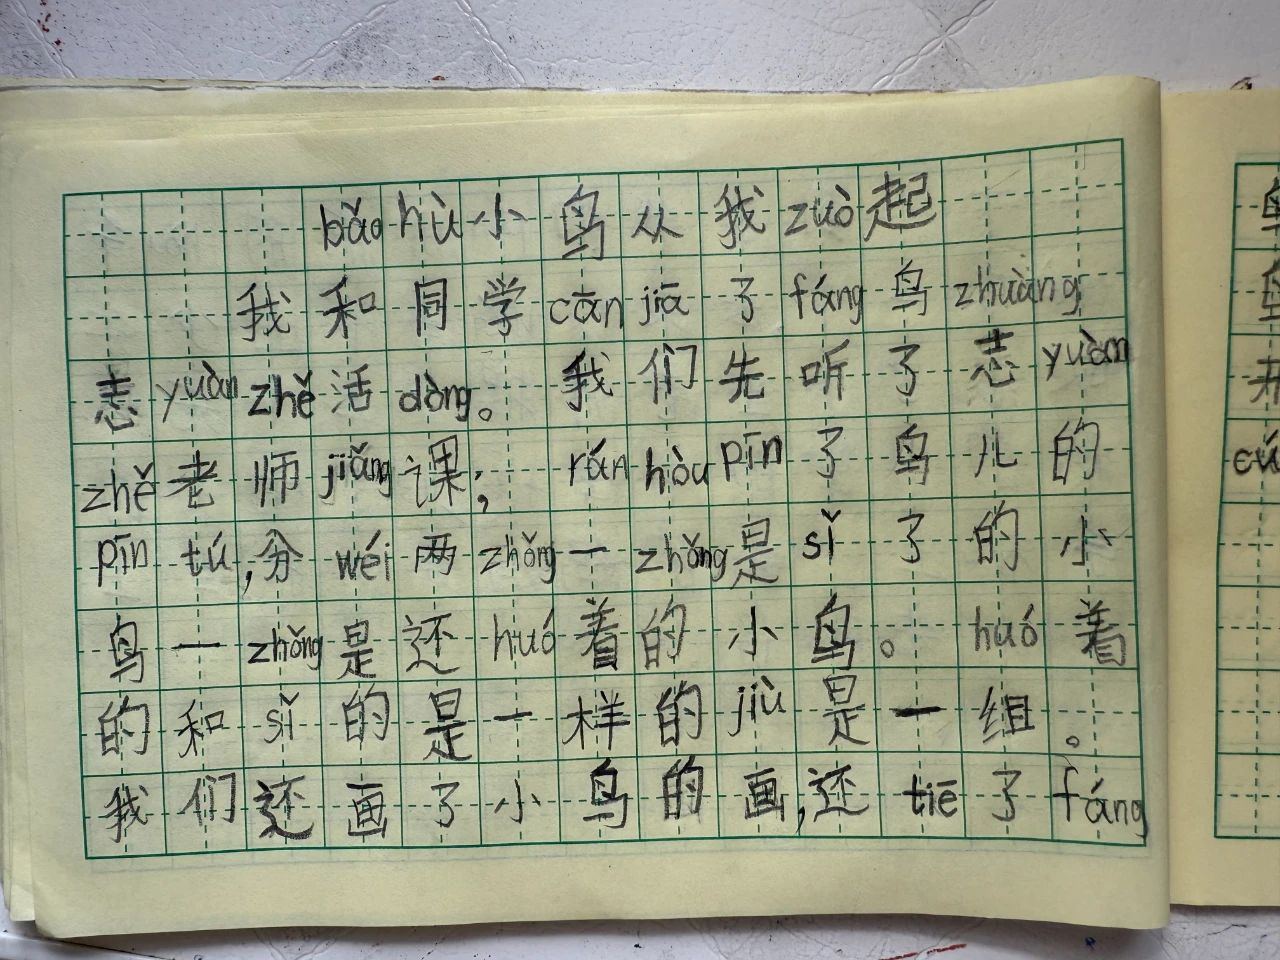 bǎo hù 小鸟从我 zuò 起
我和同学 cān jiā 了 fáng 鸟 zhuàng
志 yuàn zhě 活 dòng。我们先听了志 yuàn
zhě 老师 jiǎng 课; rán hòu pīn 了鸟儿的
pīn tú,分 wéi 两 zhǒng 一 zhǒng 是 sǐ 了的小
鸟一 zhǒng 是还 huó 着的小鸟。huó 着
的和 sǐ 的是一样的 jiù 是一组。
我们还画了小鸟的画,还 tiē 了 fáng